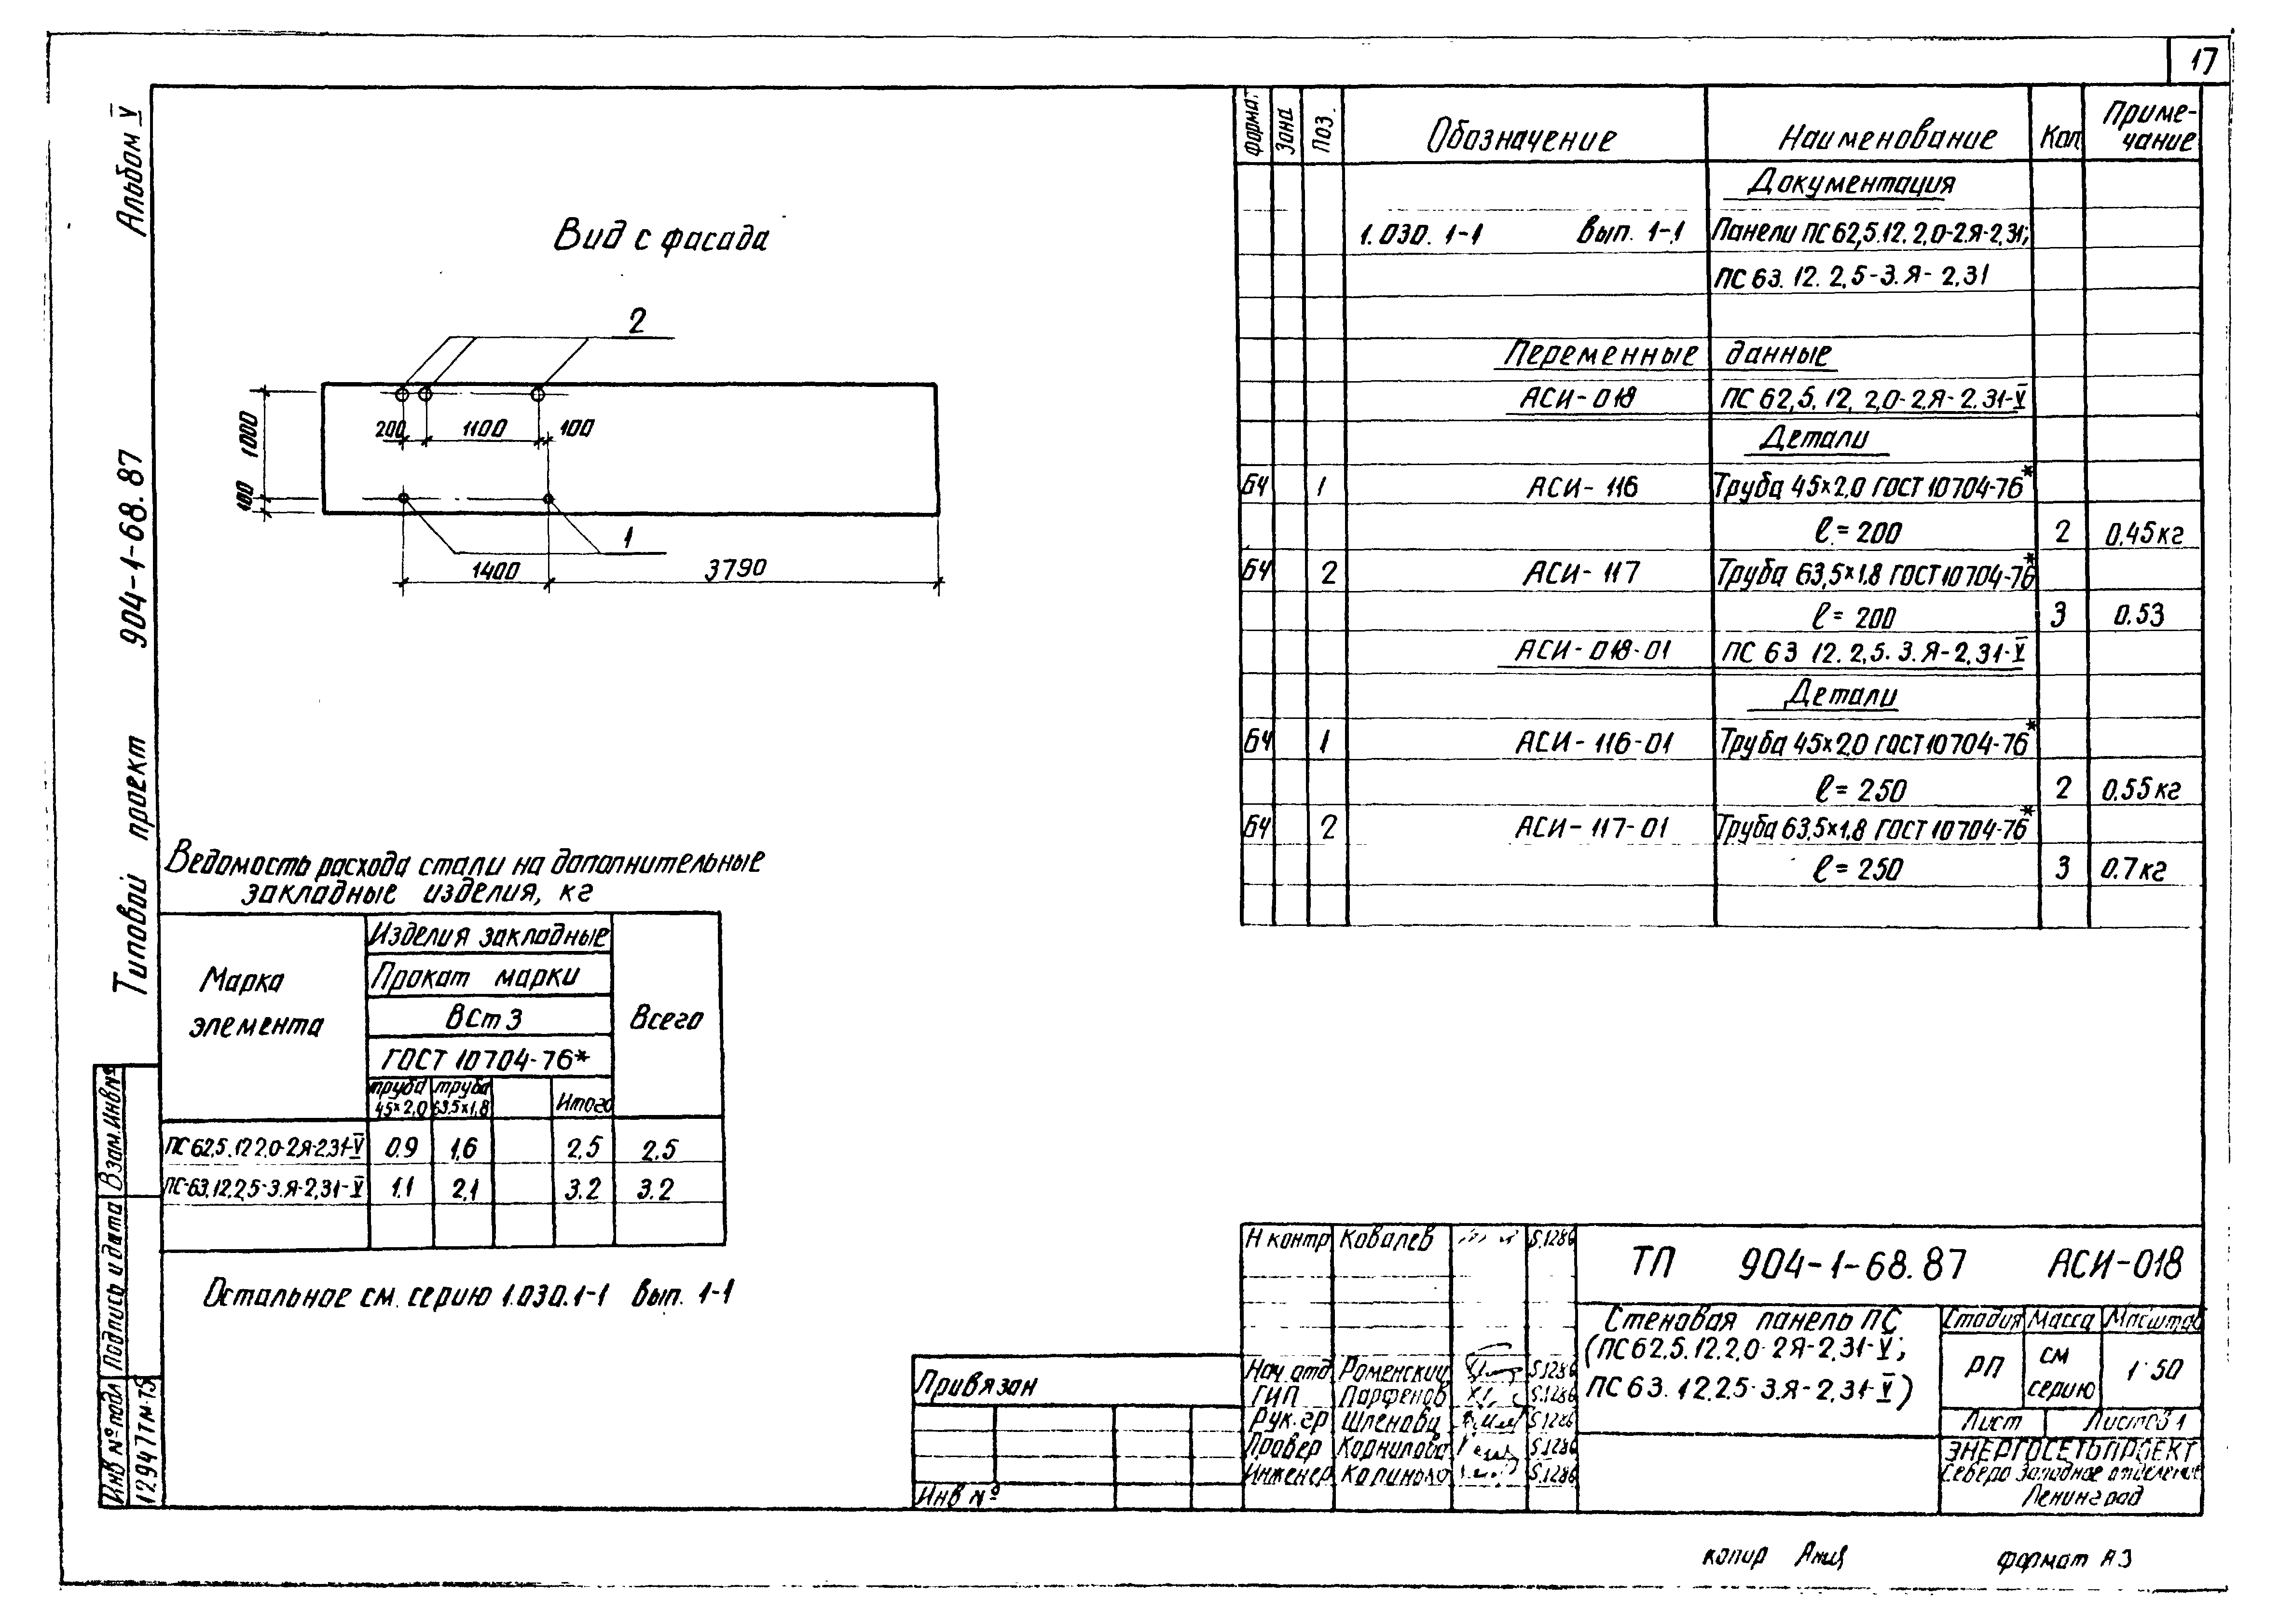 17
Альбом V
Типовой проект 904-1-68.87
Вид с фасада
2
200 1100 100
1000
100
1
1400 3790
Формат Зона Поз. Обозначение Наименование Кол Приме-
чание
Документация
1.030.1-1 Вып. 1-1 Панели ПС62,5.12.2,0-2.Я-2,31;
ПС 63.12.2,5-3.Я-2,31
Переменные данные
АСИ-018 ПС 62,5.12.2,0-2.Я-2.31-V
Детали
БЧ 1 АСИ-116 Труба 45×2,0 ГОСТ 10704-76*
ℓ=200 2 0,45кг
БЧ 2 АСИ-117 Труба 63,5×1,8 ГОСТ 10704-76*
ℓ=200 3 0.53
АСИ-018-01 ПС 63 12.2,5.3.Я-2,31-V
Детали
БЧ 1 АСИ-116-01 Труба 45×2,0 ГОСТ 10704-76*
ℓ=250 2 0,55кг
БЧ 2 АСИ-117-01 Труба 63,5×1,8 ГОСТ 10704-76*
ℓ=250 3 0.7кг
Ведомость расхода стали на дополнительные
закладные изделия, кг
Марка
элемента
Изделия закладные
Прокат марки
ВСт 3
ГОСТ 10704-76*
труба
45×2,0
труба
63,5×1,8
Итого
Всего
ПС 62,5.12 2,0-2Я-2,31-V 0.9 1,6 2,5 2.5
ПС-63.12.2,5-3.Я-2,31-V 1.1 2,1 3.2 3.2
Остальное см. серию 1.030.1-1 Вып. 1-1
Взам.Инв№
Подпись и дата
Инв № подл
12947тм-т5
Привязан
Инв №
Н контр Ковалев 5.1286
Нач. отд Роменский 5.1286
ГИП Парфенов 5.1286
Рук. гр Шленова 5.1286
Провер Корнилова 5.1286
Инженер 5.1286
ТП 904-1-68.87 АСИ-018
Стеновая панель ПС
(ПС62,5.12.2,0-2Я-2,31-V;
ПС 63.12.2.5-3.Я-2,31-V)
Стадия Масса Масштаб
РП см
серию
1:50
Лист Листов 1
ЭНЕРГОСЕТЬПРОЕКТ
Северо Западное отделение
Ленинград
копир
формат А3